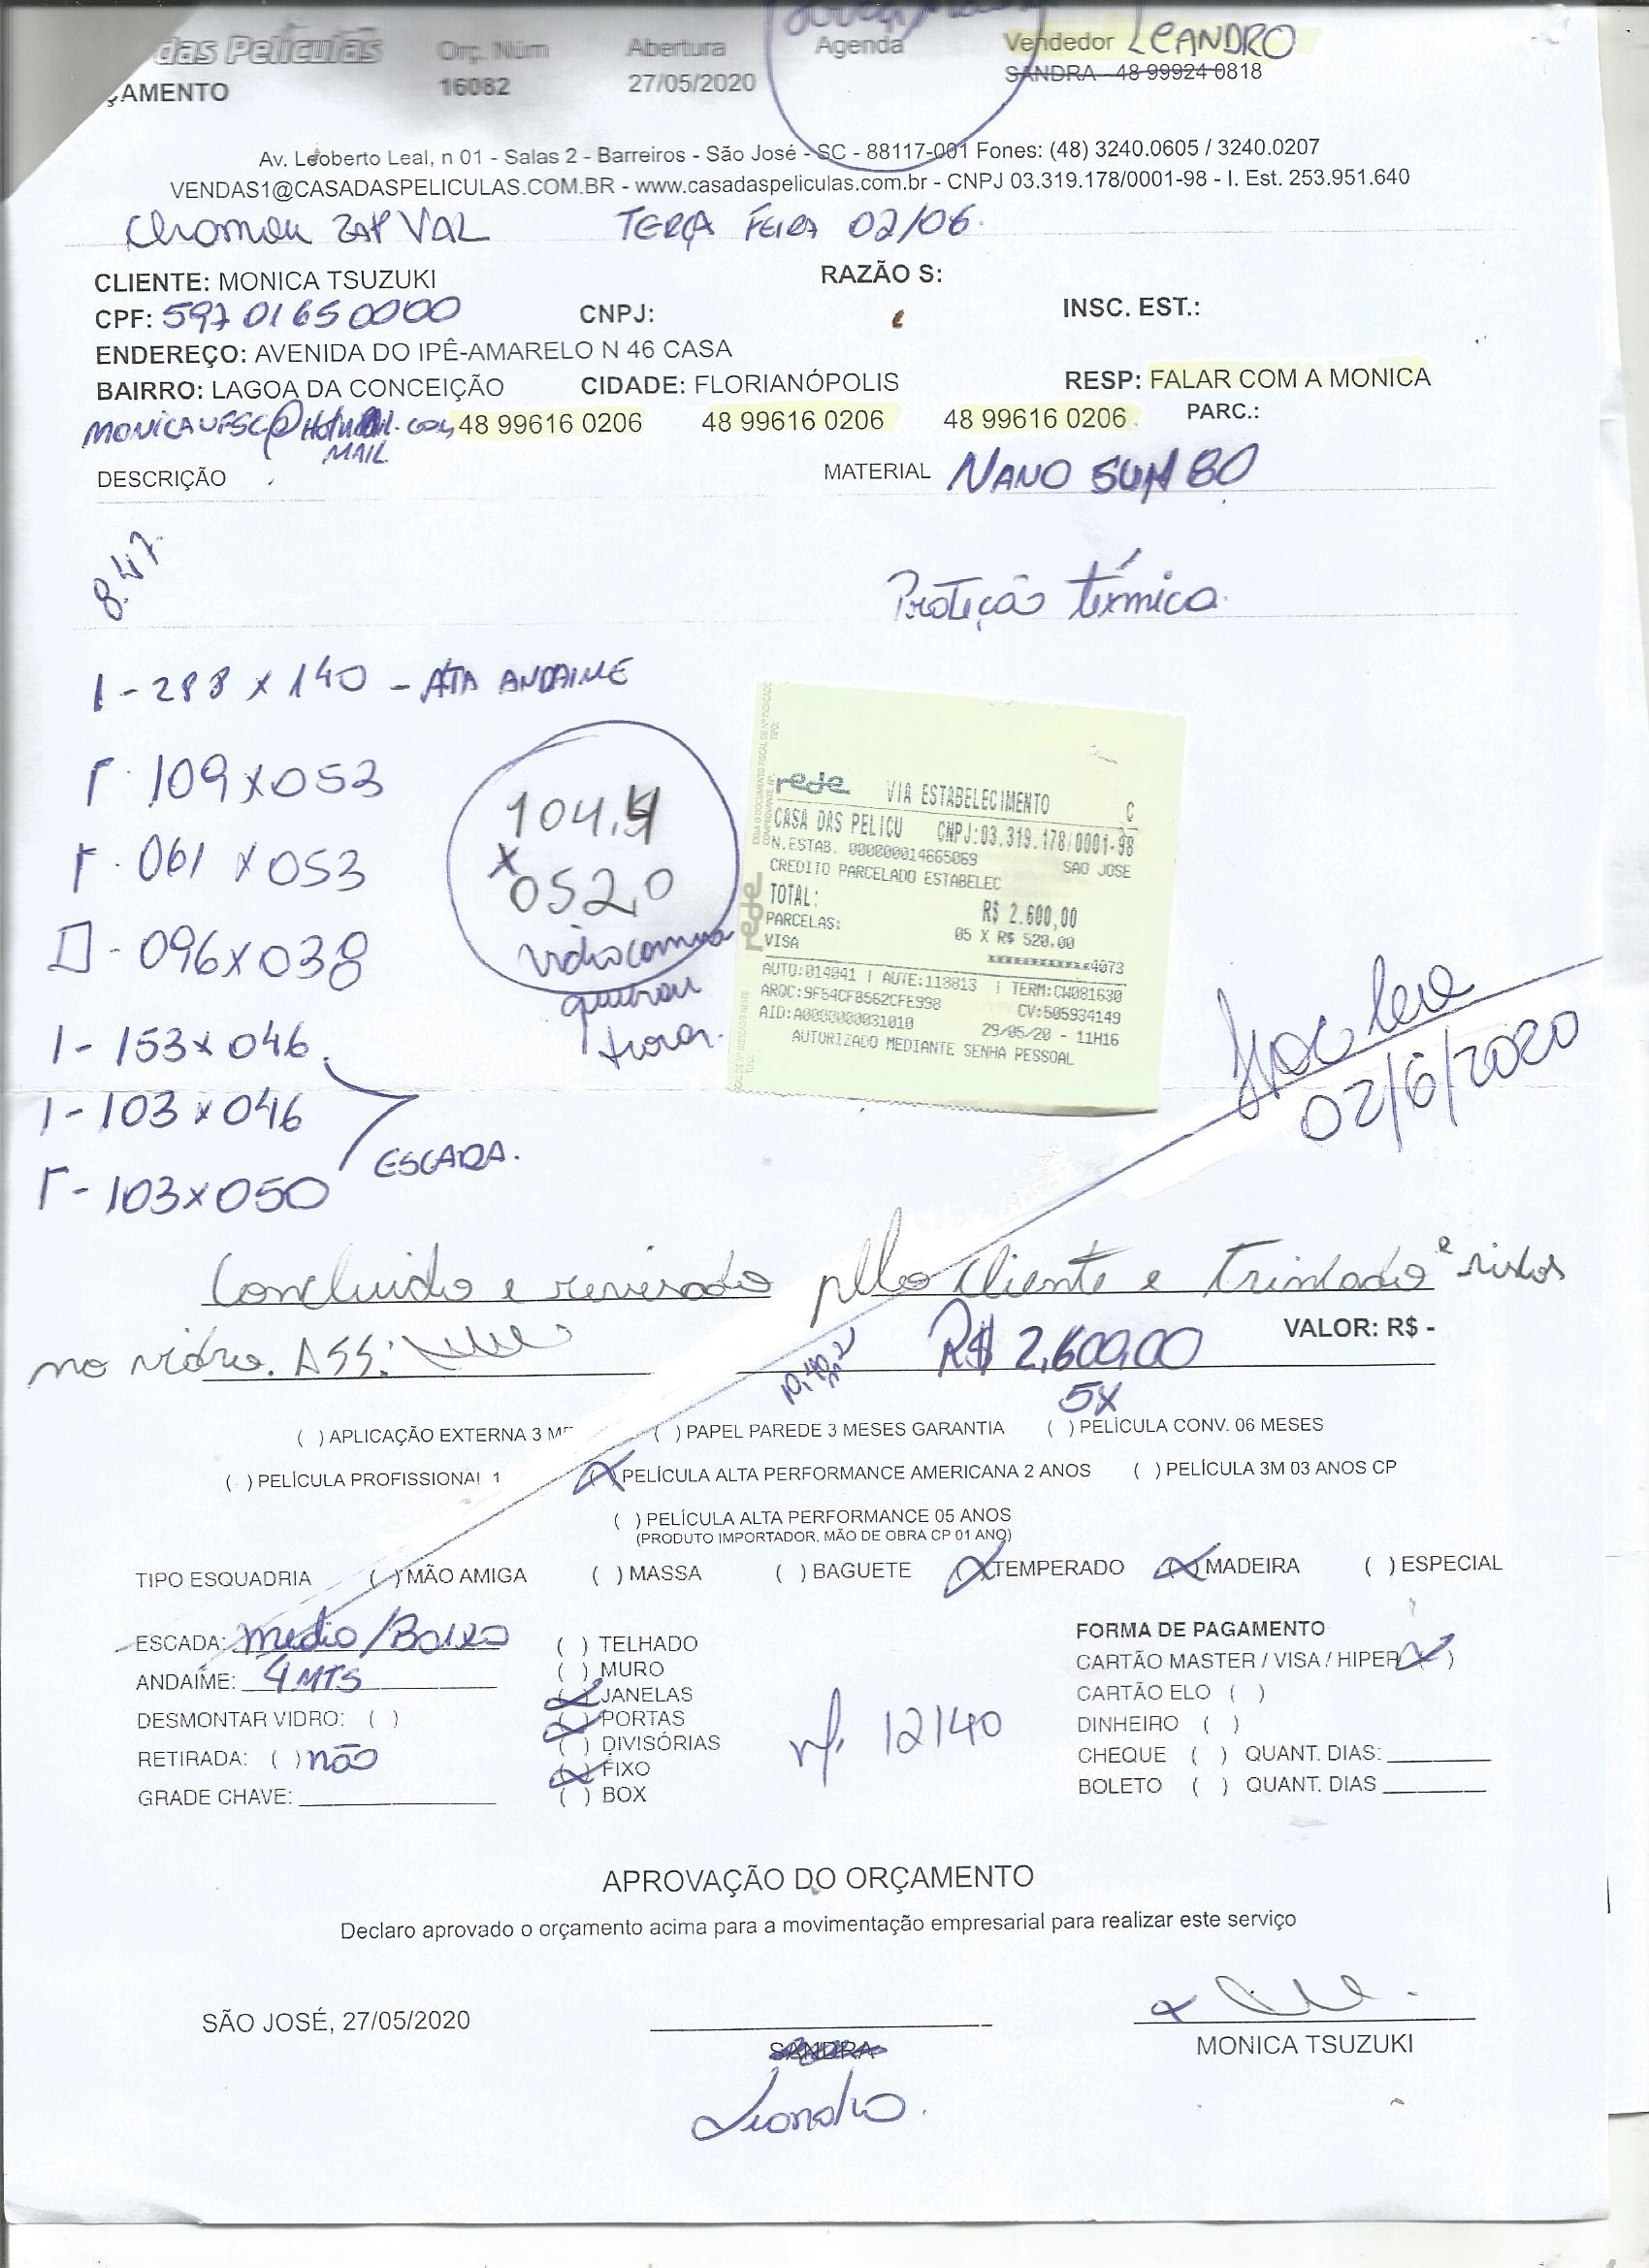 das Películas Orç. Núm Abertura Agenda Vendedor LEANDRO
ÇAMENTO 16082 27/05/2020 SANDRA - 48 99924 0818
Av. Leoberto Leal, n 01 - Salas 2 - Barreiros - São José - SC - 88117-001 Fones: (48) 3240.0605 / 3240.0207
VENDAS1@CASADASPELICULAS.COM.BR - www.casadaspeliculas.com.br - CNPJ 03.319.178/0001-98 - I. Est. 253.951.640
ZAP VAL TERÇA FEIRA 02/06.
CLIENTE: MONICA TSUZUKI RAZÃO S:
CPF: 59701650000 CNPJ: INSC. EST.:
ENDEREÇO: AVENIDA DO IPÊ-AMARELO N 46 CASA
BAIRRO: LAGOA DA CONCEIÇÃO CIDADE: FLORIANÓPOLIS RESP: FALAR COM A MONICA
MONICAUFSC@HOTMAIL.COM 48 99616 0206 48 99616 0206 48 99616 0206 PARC.:
MAIL
DESCRIÇÃO MATERIAL NANO SUN 80
8.47
Proteção térmica
1 - 288 x 140 - ATA ANDAIME
109 x 053
061 x 053
096 x 038
1 - 153 x 046
1 - 103 x 046
ESCADA.
103 x 050
104,4
x
052,0
quebrou
trocar.
rede VIA ESTABELECIMENTO C
CASA DAS PELICU CNPJ:03.319.178/0001-98
N.ESTAB. 000000014665069 SAO JOSE
CREDITO PARCELADO ESTABELEC
TOTAL: R$ 2.600,00
PARCELAS: 05 X R$ 520,00
VISA ************4073
AUTO:014041 | AUTE:113813 | TERM:CW081630
ARQC:9F54CFB562CFE998 CV:505934149
AID:A0000000031010 29/05/20 - 11H16
AUTORIZADO MEDIANTE SENHA PESSOAL
rede
02/6/2020
Concluido e revisado pello cliente e trintado e riscos
no vidro. ASS:
R$ 2.600,00 VALOR: R$ -
5X
( ) APLICAÇÃO EXTERNA 3 ME ( ) PAPEL PAREDE 3 MESES GARANTIA ( ) PELÍCULA CONV. 06 MESES
( ) PELÍCULA PROFISSIONAL 1 (X) PELÍCULA ALTA PERFORMANCE AMERICANA 2 ANOS ( ) PELÍCULA 3M 03 ANOS CP
( ) PELÍCULA ALTA PERFORMANCE 05 ANOS
(PRODUTO IMPORTADOR, MÃO DE OBRA CP 01 ANO)
TIPO ESQUADRIA ( ) MÃO AMIGA ( ) MASSA ( ) BAGUETE (X) TEMPERADO (X) MADEIRA ( ) ESPECIAL
ESCADA: Medio/Baixo
ANDAÍME: 4 MTS
DESMONTAR VIDRO: ( )
RETIRADA: ( ) não
GRADE CHAVE:
( ) TELHADO
( ) MURO
(X) JANELAS
(X) PORTAS
( ) DIVISÓRIAS
(X) FIXO
( ) BOX
nf. 12140
FORMA DE PAGAMENTO
CARTÃO MASTER / VISA / HIPER (X)
CARTÃO ELO ( )
DINHEIRO ( )
CHEQUE ( ) QUANT. DIAS:
BOLETO ( ) QUANT. DIAS
APROVAÇÃO DO ORÇAMENTO
Declaro aprovado o orçamento acima para a movimentação empresarial para realizar este serviço
SÃO JOSÉ, 27/05/2020
SANDRA MONICA TSUZUKI
Leandro.